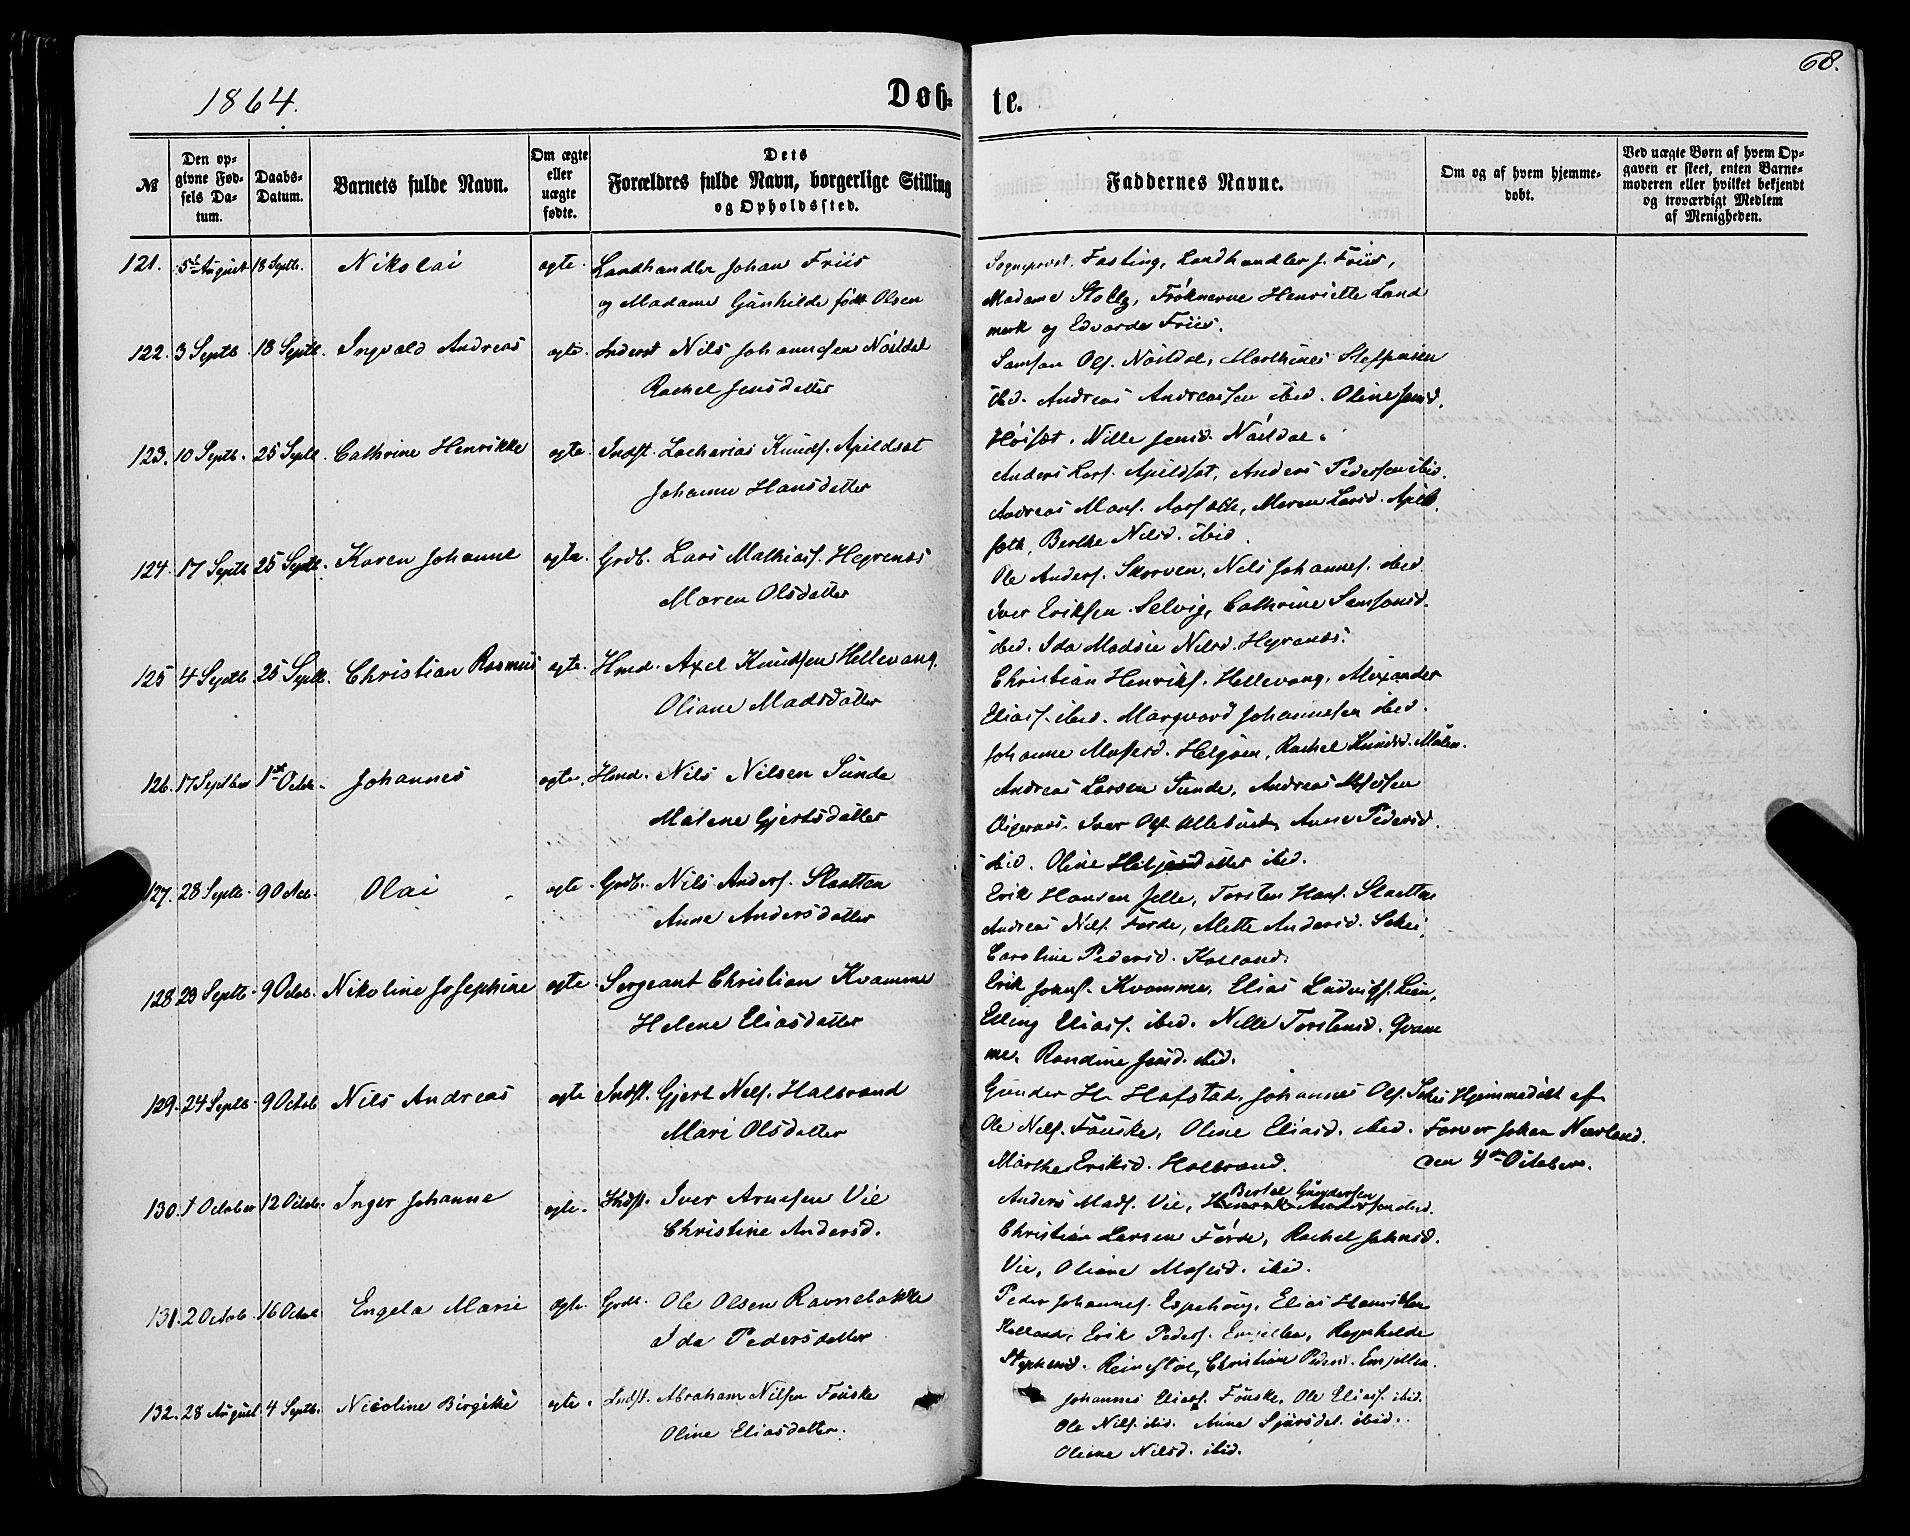 68.
1864.
Døb-
te.
№
Den op-
givne Fød-
sels Da-
tum.
Daabs-
Datum.
Barnets fulde Navn.
Om ægte
eller
uægte
fødte.
Dets
Forældres fulde Navn, borgerlige Stilling
og Opholdssted.
Faddernes Navne.
Om og af hvem hjemme-
døbt.
Ved uægte Børn af hvem Op-
gaven er skeet, enten Barne-
moderen eller hvilket bekjendt
og troværdigt Medlem
af Menigheden.
121. 5te August 18 Septb. Nikolai ægte. Landhandler Johan Friis
og Madame Gunhilde født Olsen
Sogneprest Fasting, Landhandler J. Friis,
Madame Stoltz, Frøknerne Henriette Land
mark og Edvarda Friis.
122. 3 Septb 18 Septb. Ingvald Andreas ægte. Inderst Nils Johannesen Nøstdal
Rachel Jensdatter
Samson Ols. Nøstdal, Marthinus Steffensen
ibid. Andreas Andreassen ibid. Oline Jensd.
Høisæt. Nille Jensd. Nøstdal.
123. 10 Septb. 25 Septb. Cathrine Henrikke ægte. Indst. Zacharias Knuds. Apildsæt
Johanne Hansdatter
Anders Lars. Apildsæt, Anders Pedersen ibid.
Andreas Mons. , Maren Larsd. Apild
sæth, Berthe Nilsd. ibid.
124. 17 Septb 25 Septb. Karen Johanne ægte. Grdb. Lars Mathias. Hegrenæs
Maren Olsdatter
Ole Anders. Skorven, Nels Johannes. ibid.
Iver Eriksen Selvig, Cathrine Samsonsd.
ibid. Ida Madsie Nilsd. Hegrenæs.
125 4 Septb 25 Septb. Christian Rasmus ægte. Hmd. Axel Knudsen Hellevang.
Oliane Madsdatter
Christian Henriks. Hellevang, Alexander
Elias. ibid. Marqvard Johannesen ibid.
Johanne Mosesd. Helgøen, Rachel Knudsd. Malen.
126. 17 September 1ste Octob. Johannes ægte. Hmd. Nils Nilsen Sunde
Malene Gjertsdatter
Andreas Larsen Sunde, Andreas Mosessen
Digernæs. Iver Ols. , Anne Pedersd.
ibid. Oline Helgesdatter ibid.
127. 28 Septb. 9 Octob. Olai ægte. Grdb. Nils Anders. Slaatten
Anne Andersdatter
Erik Hansen Jelle, Torsten Hans. Slaatten
Andreas Nils. Førde, Alette Andersd. Schei,
Caroline Pedersd. Kalland.
128 23 Septb. 9 Octob. Nikoline Josephine ægte. Sergeant Christian Kvamme
Helene Eliasdatter
Erik Johns. Kvamme, Elias Ludvigs. Lien,
Erling Elias. ibid. Nille Torstensd. Qvam
me. Randine Jensd. ibid.
129. 24 Septb. 9 Octob Nils Andreas ægte Indst. Gjert Nels. Halbrand
Mari Olsdatter
Gunder H. Hafstad, Johannes Ols. Schei
Ole Nels. Fouske, Oline Eliasd. ibid.
Marthe Eriksd. Halbrand.
Hjemmedøbt af
Farver Johan Nærland.
den 4de October.
130. 1 October 12 Octob. Inger Johanne ægte. Indst. Iver Arnesen Vie
Christine Andersd.
Anders Mads. Vie, Bertel Gundersen ibid.
Christian Larsen Førde, Rachel Johnsd.
Vie, Oliane Mosesd. ibid.
131. 2 Octob. 16 Octob Engela Marie ægte. Grdb. Ole Olsen Ravnebakke
Ida Pedersdatter
Peder Johannes. Espehoug, Elias Henriksen
Kalland, Erik Peders. Engillen, Ragnhilde
Stephensd. Reinestøl, Christian Peders. Engillen.
132. 28 August 4 Septb. Nicoline Birgitte ægte. Indst. Abraham Nilsen Fouske
Oline Eliasdatter.
Johannes Elias. Fouske, Ole Elias. ibid.
Ole Nils. ibid. Anne Sjursdat. ibid.
Oliane Nilsd. ibid.